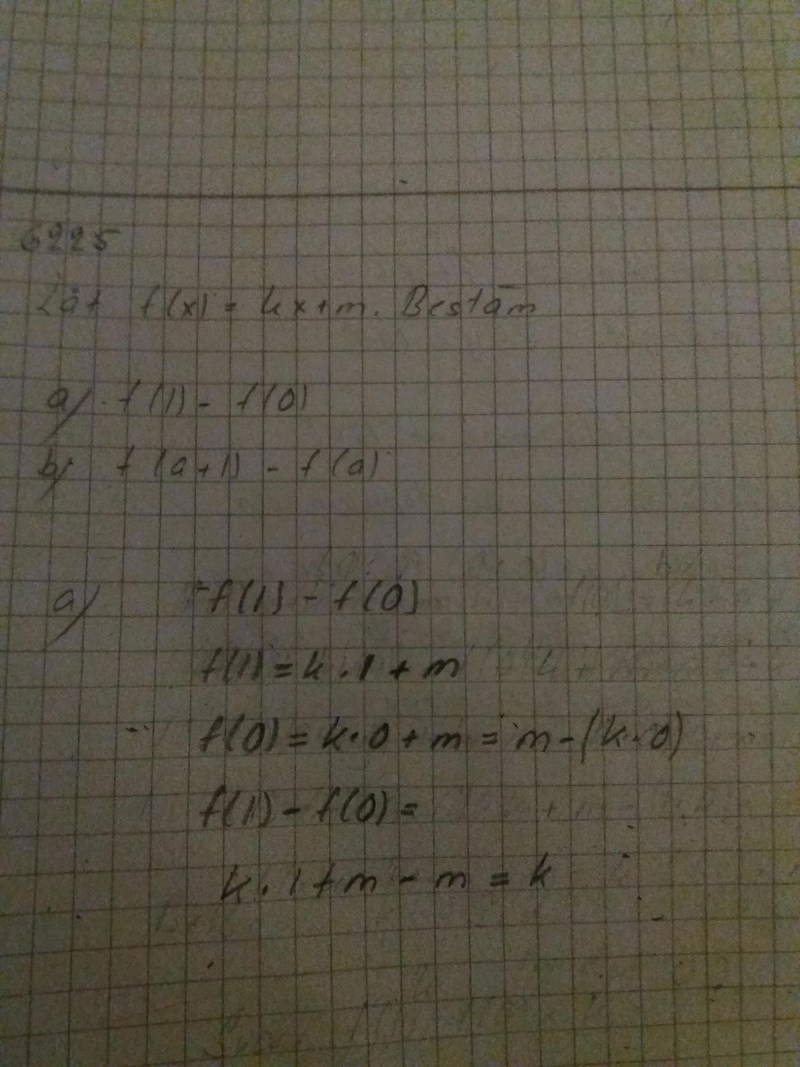 6225
Låt f(x) = kx+m. Bestäm
a) f(1) - f(0)
b) f(a+1) - f(a)
a) f(1) - f(0)
f(1) = k·1 + m
f(0) = k·0 + m = m-(k·0)
f(1) - f(0) =
k·1+m - m = k